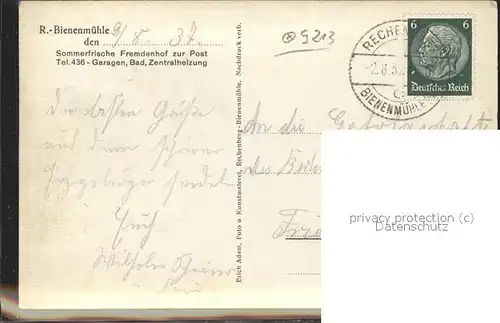 R.-Bienenmühle
den 9/8. 37.
Sommerfrische Fremdenhof zur Post
Tel. 436 - Garagen, Bad, Zentralheizung
⊛ 9213
RECHEN
-2.8.3
BIENENMÜHLE
6 6
Deutsches Reich
Die besten Grüße
aus dem schönen
Erzgebirge sendet
Euch
Wilhelm
An die
des
Erich Adam, Foto u Kunstmalerei, Rechenberg-Bienenmühle. Nachdruck verb.
privacy protection (c)
Datenschutz